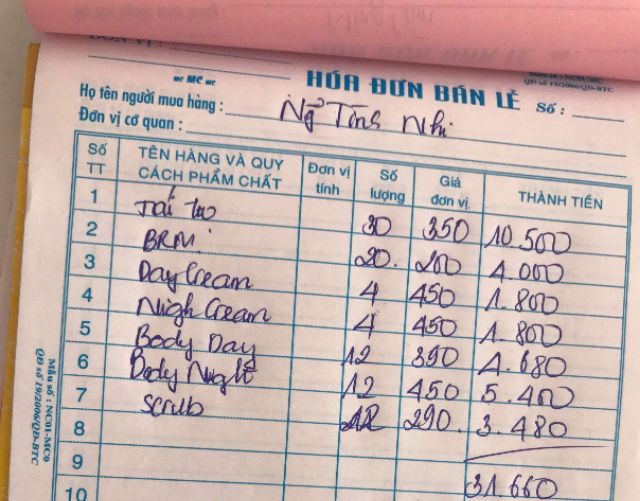 ĐƠN VỊ :
MC
HÓA ĐƠN BÁN LẺ
Mẫu số : NC01-MC
QĐ số 19/2006/QĐ-BTC
Số :
Họ tên người mua hàng : Nhi
Đơn vị cơ quan :
Số TT TÊN HÀNG VÀ QUY CÁCH PHẨM CHẤT Đơn vị tính Số lượng Giá đơn vị THÀNH TIỀN
1 Tái tạo 30 350 10.500
2 BRM 20. 200 4.000
3 Day Cream 4 450 1.800
4 Nigh Cream 4 450 1.800
5 Body Day 12 390 4.680
6 Body Night 12 450 5.400
7 Scrub 12 290. 3.480
8
9 31.660
10
Mẫu số : NC01-MC6
QĐ số 19/2006/QĐ-BTC